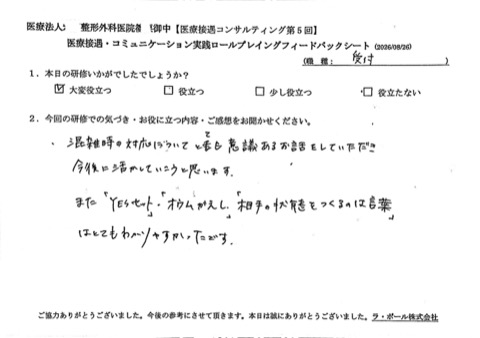 医療法人 整形外科医院 御中【医療接遇コンサルティング第5回】
医療接遇・コミュニケーション実践ロールプレイングフィードバックシート (2026/08/26)
(職種: 受付 )
1.本日の研修いかがでしたでしょうか?
☑ 大変役立つ □ 役立つ □ 少し役立つ □ 役立たない
2.今回の研修での気づき・お役に立つ内容・ご感想をお聞かせください。
・混雑時の対応について とても意議あるお話をしていただき
今後に活かしていこうと思います。
また「YESセット」・「オウムがえし」・「相手の状態をつくるのは言葉」
はとてもわかりやすかったです。
ご協力ありがとうございました。今後の参考にさせて頂きます。本日は誠にありがとうございました。ラ・ポール株式会社